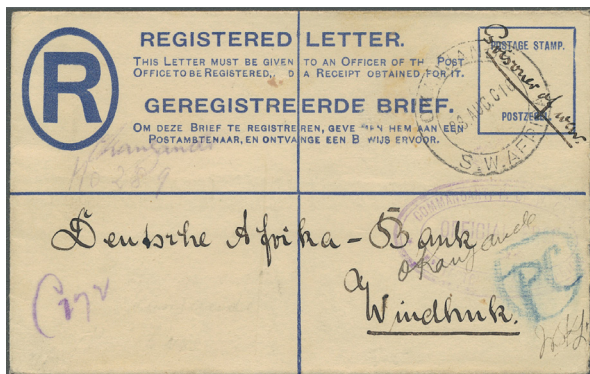 REGISTERED LETTER.
THIS LETTER MUST BE GIVEN TO AN OFFICER OF TH POST
OFFICE TO BE REGISTERED, D A RECEIPT OBTAINED FOR IT.
R
GEREGISTREERDE BRIEF.
OM DEZE BRIEF TE REGISTREREN, GEVE MEN HEM AAN EEN
POSTAMBTENAAR, EN ONTVANGE EEN B WIJS ERVOOR.
POSTAGE STAMP.
POSTZEGEL
Prisoner of war
AUG
S.W.AFRICA
No 289
COMMANDANT
OFFICIAL
Deutsche Afrika-Bank
Okanjande
Windhuk.
PC